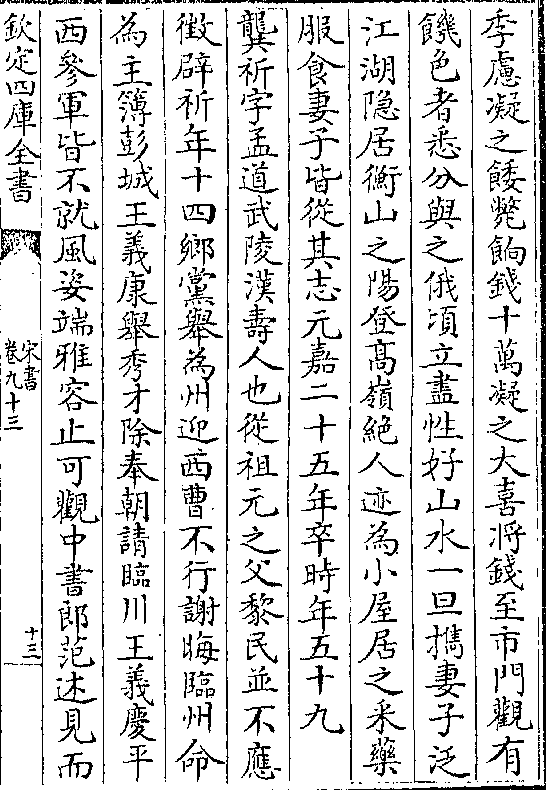 季慮凝之餧斃餉錢十萬凝之大喜將錢至市門觀有
饑色者悉分與之俄頃立盡性好山水一旦㩗妻子泛
江湖隐居衡山之陽登髙嶺絶人迹為小屋居之采藥
服食妻子皆從其志元嘉二十五年卒時年五十九
龔祈字孟道武陵漢壽人也從祖元之父黎民並不應
徴辟祈年十四鄉黨舉為州迎西曹不行謝晦臨州命
為主簿彭城王義康舉秀才除奉朝請臨川王義慶平
西參軍皆不就風姿端雅容止可觀中書郎范述見而
欽定四庫全書
宋書
卷九十三
十三